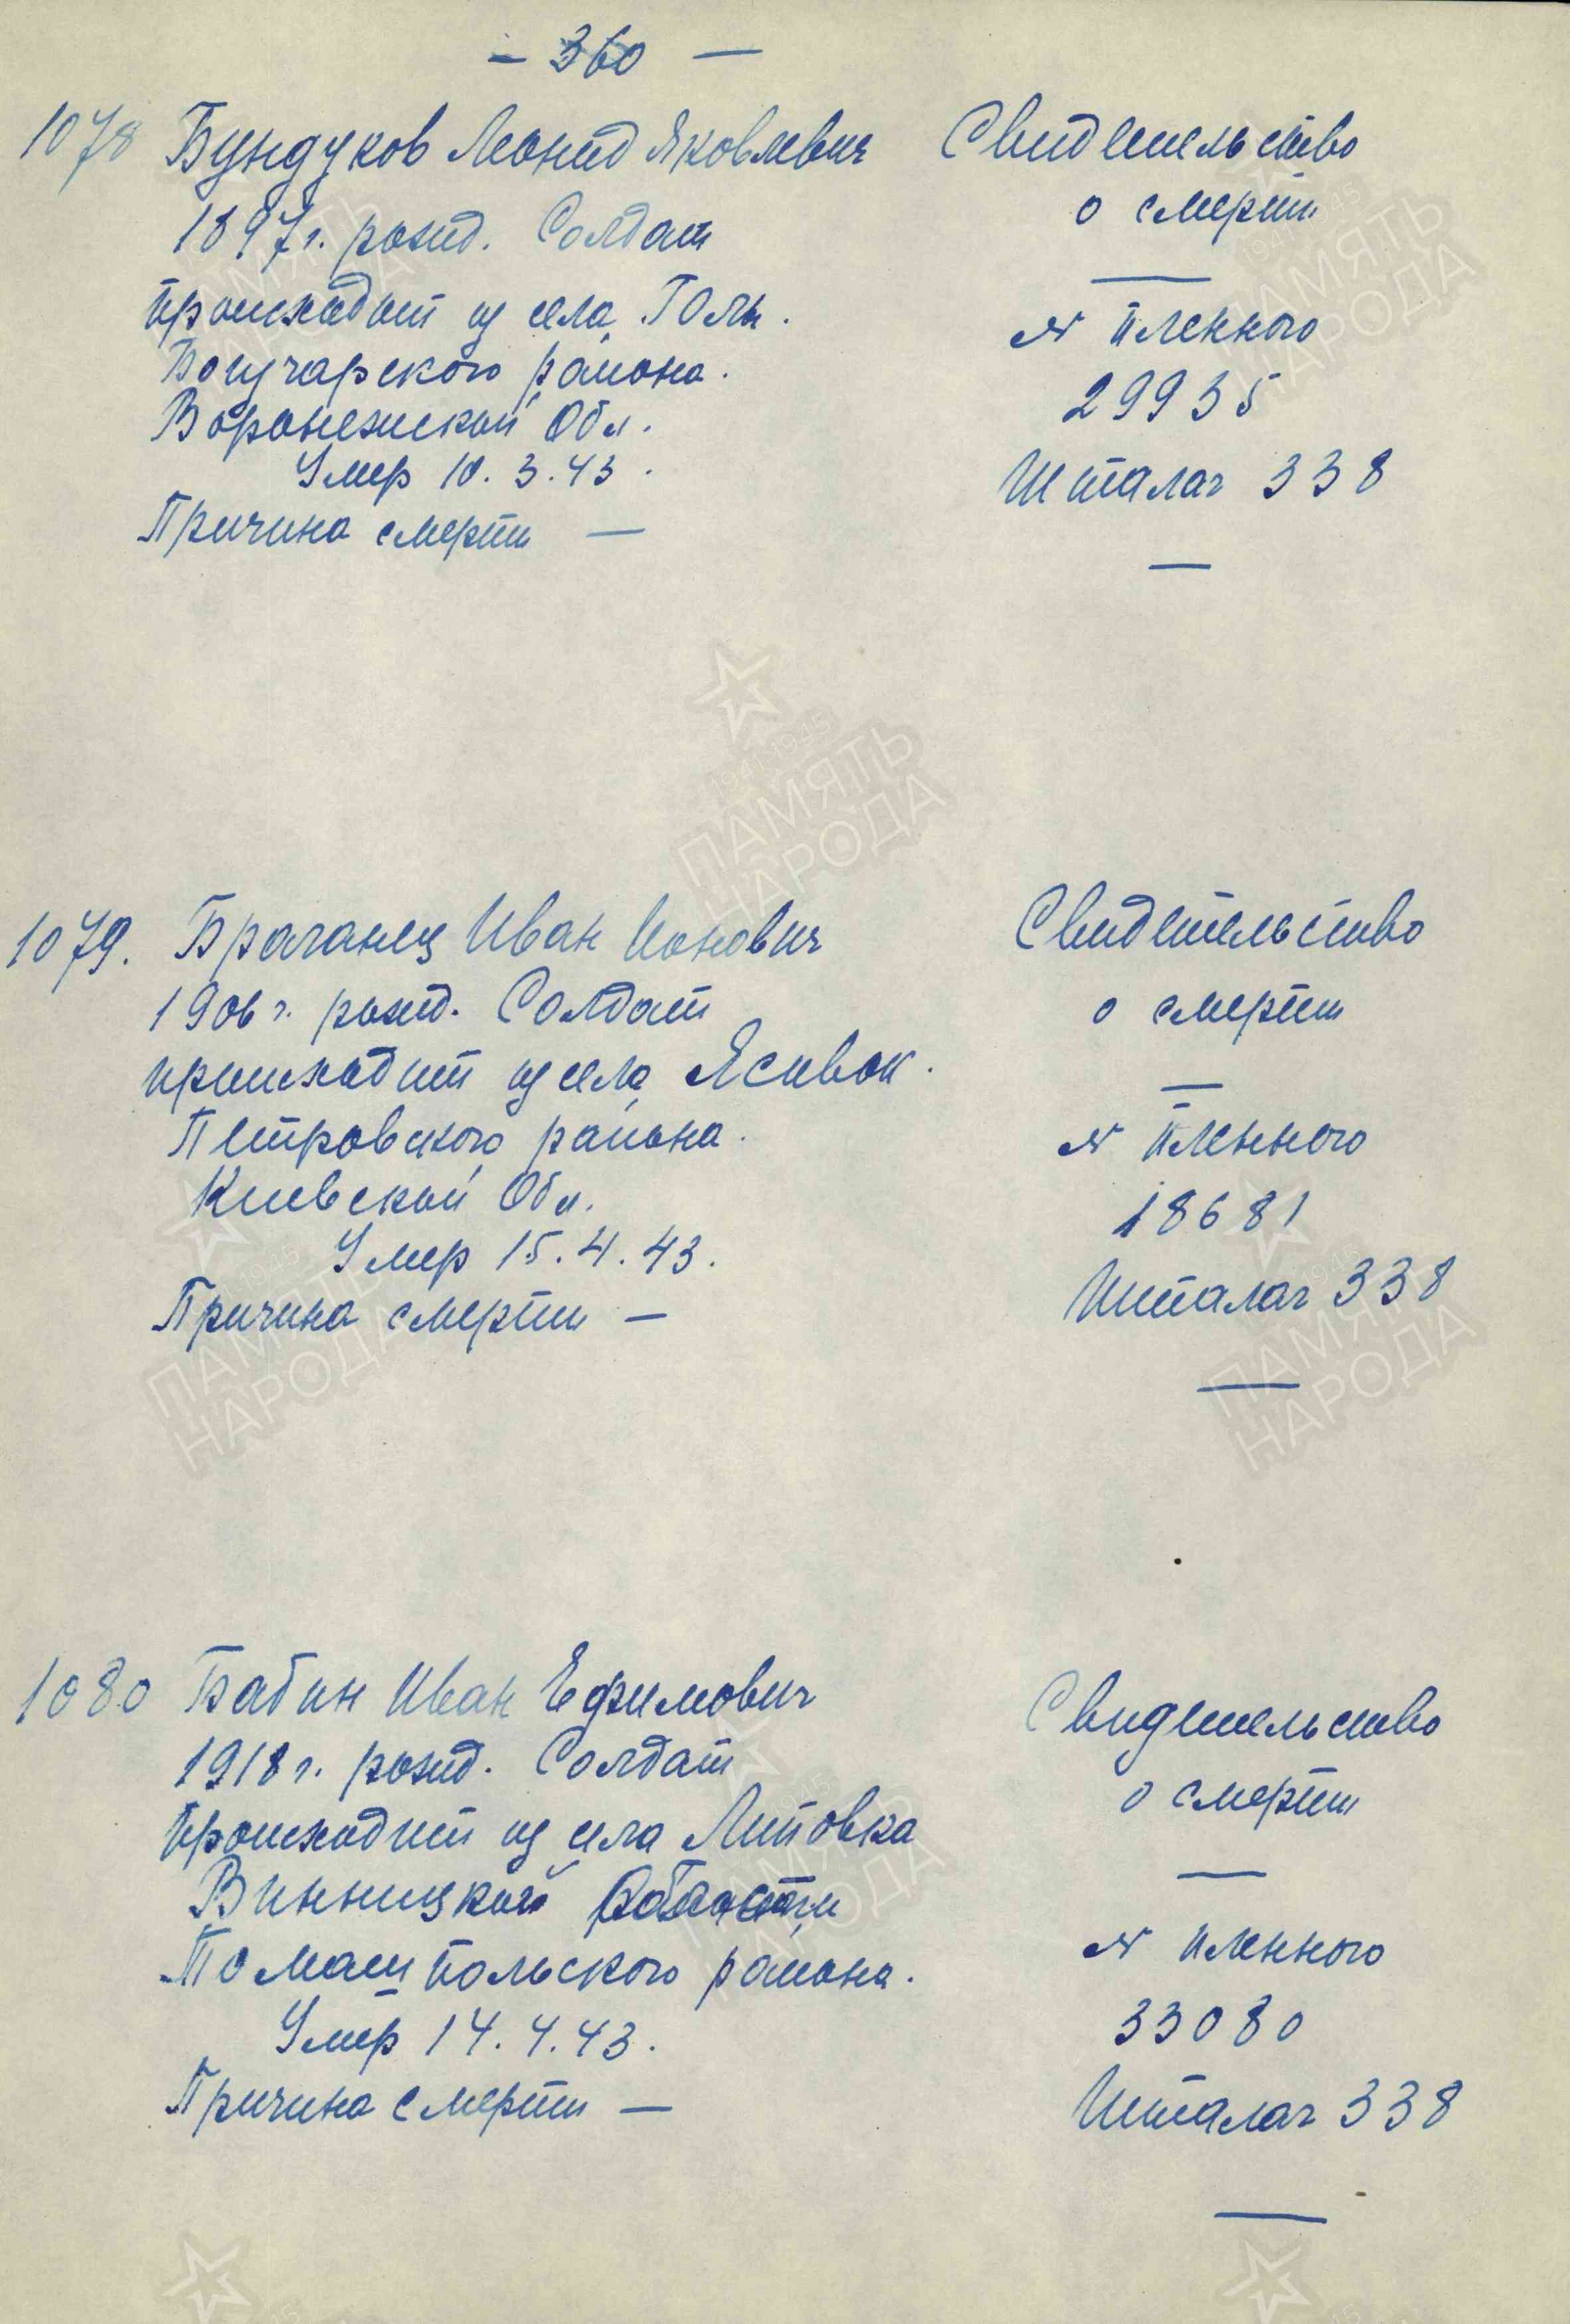 - 360 -
1078 Бундуков Леонид Яковлевич
1897 г. рожд. Солдат
происходит из села Голы.
Богучарского района.
Воронежской Обл.
Умер 10.3.43.
Причина смерти —
Свидетельство
о смерти
—
№ пленного
29935
Шталаг 338
—
1079. Браганец Иван Ионович
1906 г. рожд. Солдат
происходит из села Ясивок.
Петровского района.
Киевской Обл.
Умер 15.4.43.
Причина смерти —
Свидетельство
о смерти
—
№ пленного
18681
Шталаг 338
—
1080 Бабин Иван Ефимович
1918 г. рожд. Солдат
происходит из села Липовка
Винницкой области
Томашпольского района.
Умер 14.4.43.
Причина смерти —
Свидетельство
о смерти
—
№ пленного
33080
Шталаг 338
—
1941-1945
ПАМЯТЬ
НАРОДА